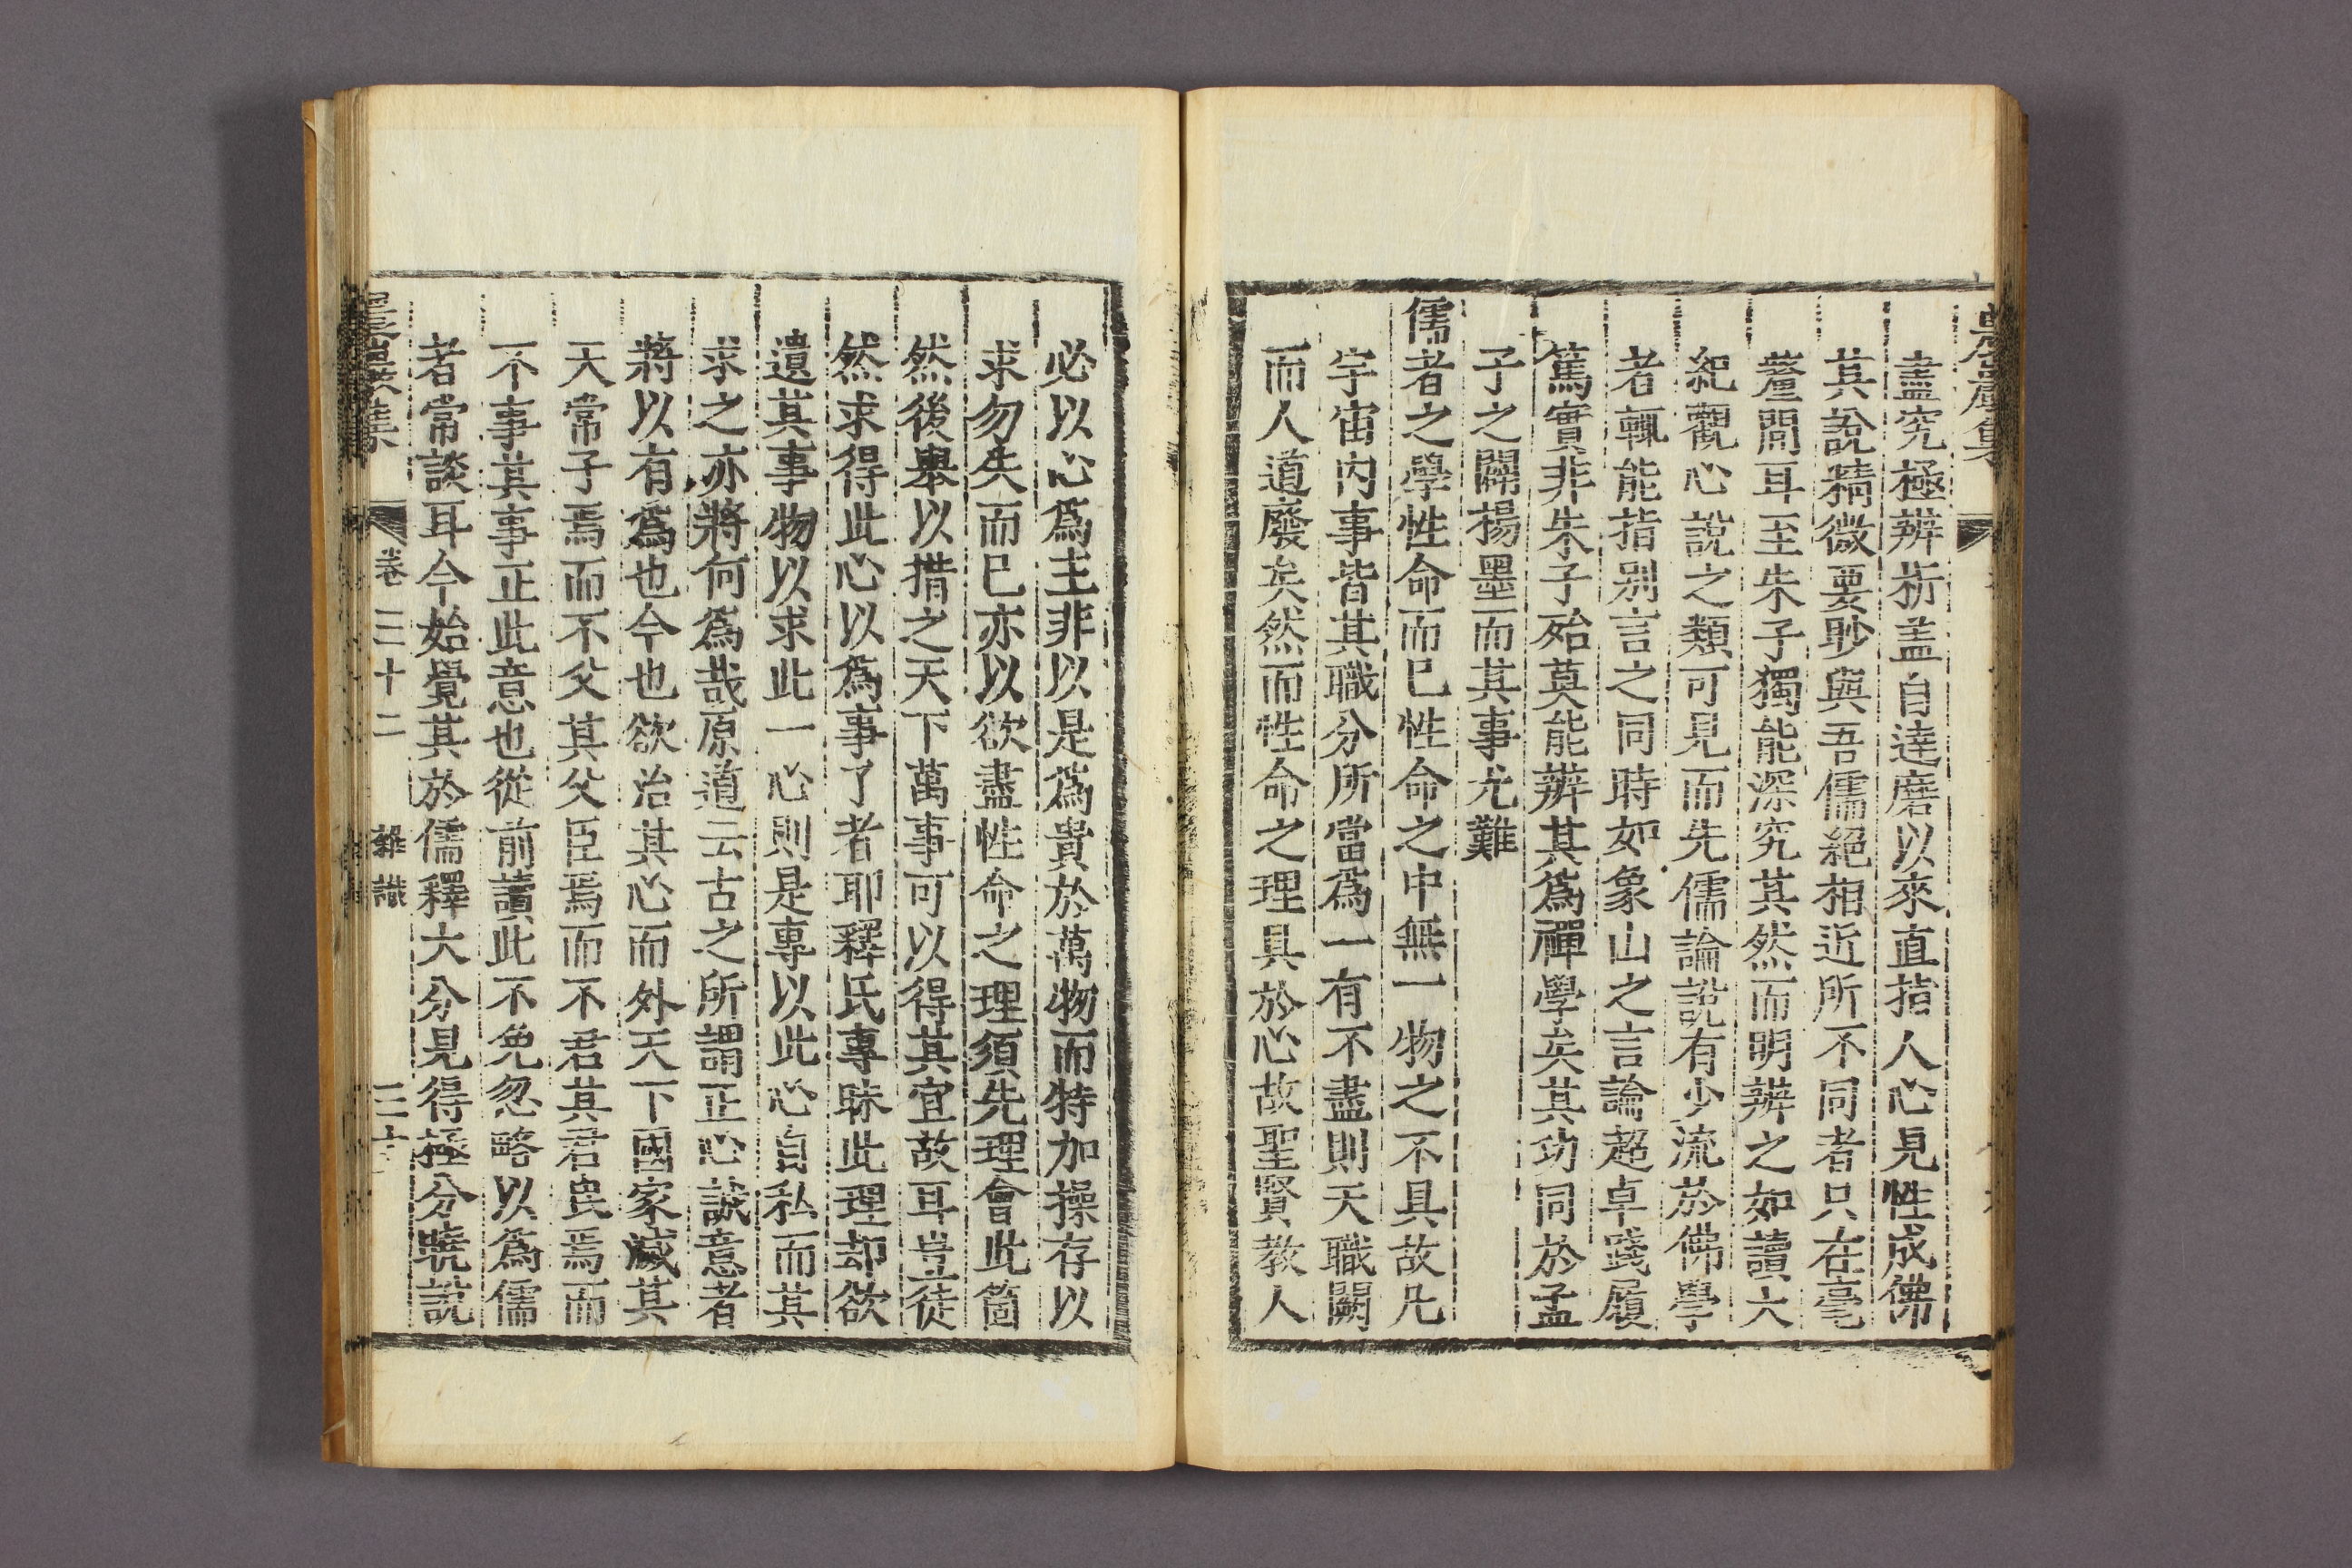 農巖集
盡究極辨析盖自達磨以來直指人心見性成佛
其說精微要眇與吾儒絕相近所不同者只在毫
釐間耳至朱子獨能深究其然而明辨之如讀大
紀觀心說之類可見而先儒論說有少流於佛學
者輒能指別言之同時如象山之言論超卓踐履
篤實非朱子殆莫能辨其爲禪學矣其功同於孟
子之闢揚墨而其事尤難
儒者之學性命而已性命之中無一物之不具故凡
宇宙內事皆其職分所當爲一有不盡則天職闕
而人道廢矣然而性命之理具於心故聖賢敎人
必以心爲主非以是爲貴於萬物而特加操存以
求勿失而已亦以欲盡性命之理須先理會此箇
然後擧以措之天下萬事可以得其宜故耳豈徒
然求得此心以爲事了者耶釋氏專昧此理却欲
遺其事物以求此一心則是專以此心自私而其
求之亦將何爲哉原道云古之所謂正心誠意者
將以有爲也今也欲治其心而外天下國家滅其
天常子焉而不父其父臣焉而不君其君民焉而
不事其事正此意也從前讀此不免忽略以爲儒
者常談耳今始覺其於儒釋大分見得極分曉說
農巖集 卷三十二 雜識 三十